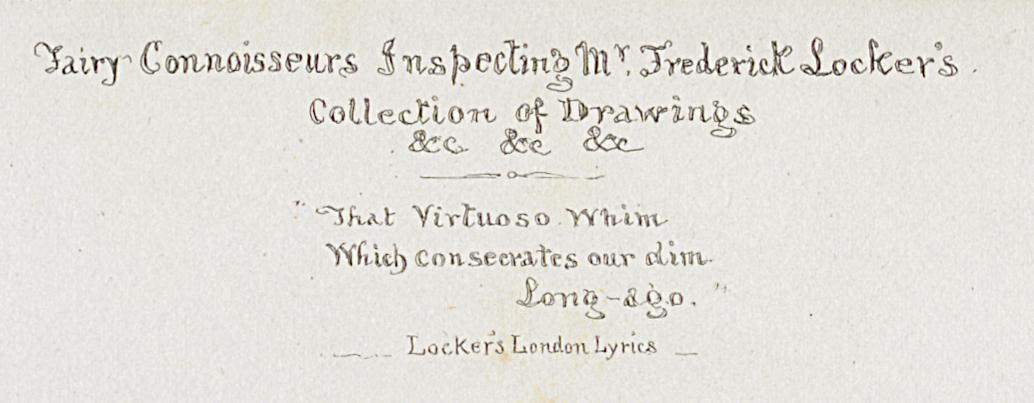 Fairy Connoisseurs Inspecting Mr. Frederick Locker's.
Collection of Drawings
&c &c &c
"That Virtuoso Whim
Which consecrates our dim
Long-ago."
Locker's London Lyrics